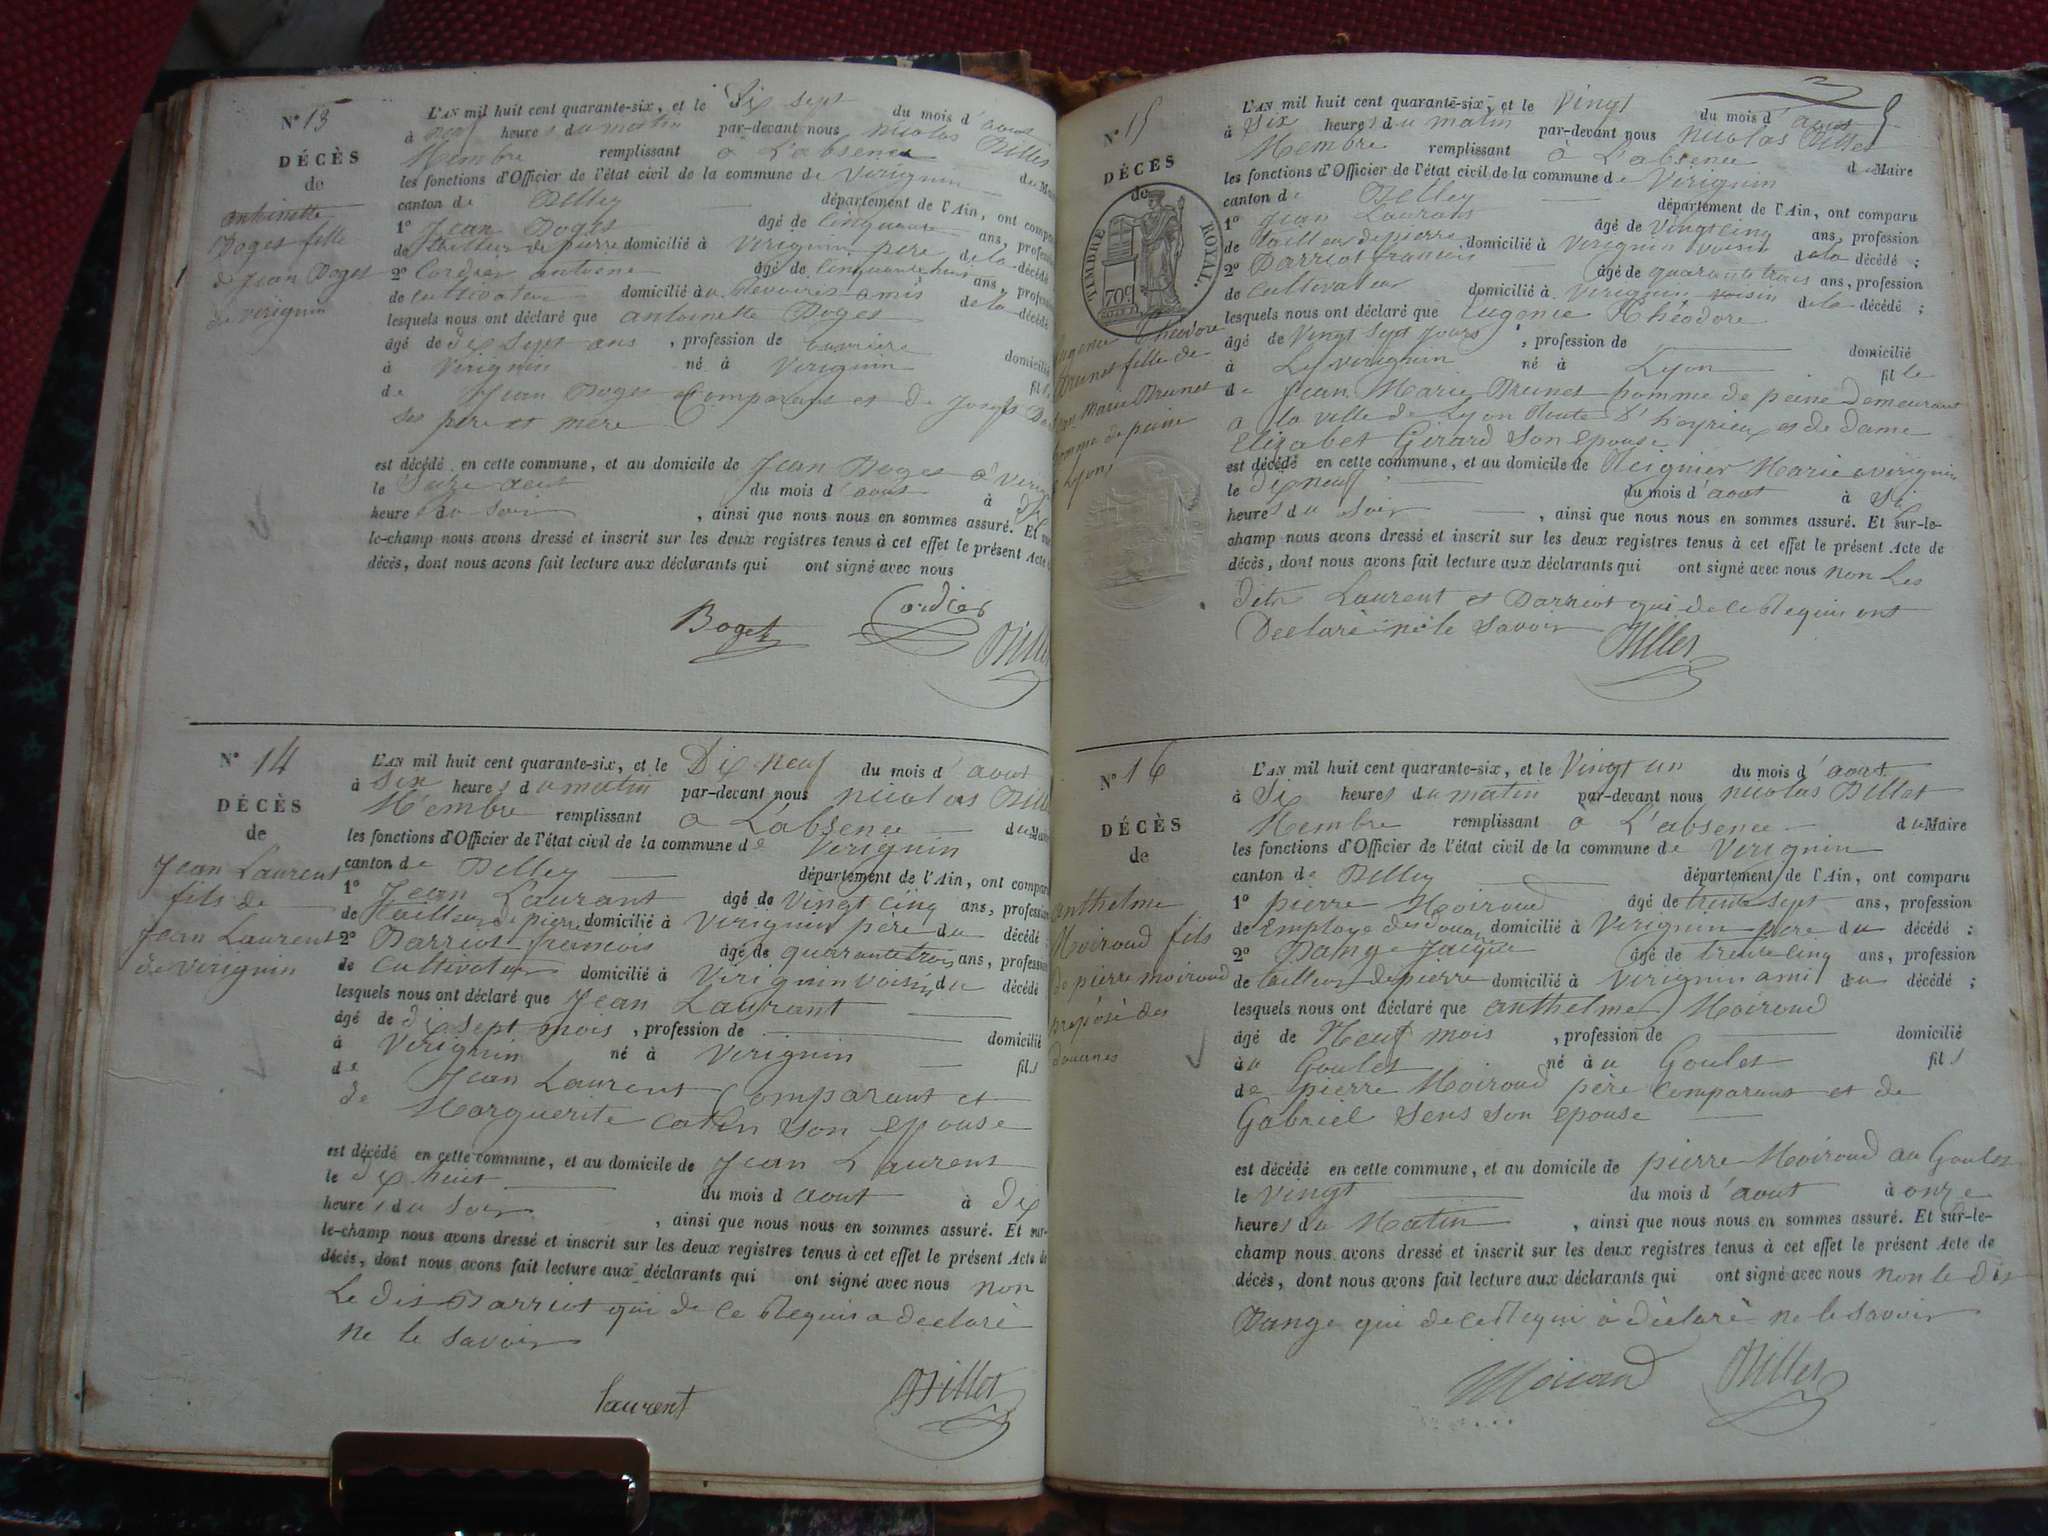 N° 13
DÉCÈS
de
antoinette
Boges fille
de Jean Boges
de virignin
L'AN mil huit cent quarante-six, et le Dix sept du mois d'aout
à neuf heures du matin par-devant nous nicolas Billet
Membre remplissant à L'absence du Maire
les fonctions d'Officier de l'état civil de la commune de virignin
canton de Belley département de l'Ain, ont comparu
1° Jean Boges âgé de cinquante ans, profession
de tailleur de pierre domicilié à virignin père de la décédé
2° Cordier antoine âgé de cinquante ans, profession
de cultivateur domicilié à amis de la décédé
lesquels nous ont déclaré que antoinette Boges
âgé de dix sept ans, profession de ouvriere domicilié
à virignin né à virignin fille
de Jean Boges Comparans et de
ses père et mere
est décédé en cette commune, et au domicile de Jean Boges à
le Seize aout du mois d'aout à
heures du soir, ainsi que nous nous en sommes assuré. Et sur-
le-champ nous avons dressé et inscrit sur les deux registres tenus à cet effet le présent Acte
décès, dont nous avons fait lecture aux déclarants qui ont signé avec nous
Boget Cordier Billet
N° 14
DÉCÈS
de
Jean Laurent
fils de
Jean Laurent
de virignin
L'AN mil huit cent quarante-six, et le Dix neuf du mois d'aout
à six heures du matin par-devant nous nicolas Billet
Membre remplissant à L'absence du Maire
les fonctions d'Officier de l'état civil de la commune de Virignin
canton de Belley département de l'Ain, ont comparu
1° Jean Laurant âgé de vingt cinq ans, profession
de tailleur de pierre domicilié à Virignin père du décédé ;
2° Parriot francois âgé de quarante trois ans, profession
de cultivateur domicilié à Virignin voisin du décédé
lesquels nous ont déclaré que Jean Laurant
âgé de dix sept mois, profession de domicilié
à Virignin né à virignin fils
de Jean Laurent Comparant et
de Marguerite catin son epouse
est décédé en cette commune, et au domicile de Jean Laurens
le dix huit du mois d aout à dix
heures du soir, ainsi que nous nous en sommes assuré. Et sur-
le-champ nous avons dressé et inscrit sur les deux registres tenus à cet effet le présent Acte de
décès, dont nous avons fait lecture aux déclarants qui ont signé avec nous non
Le dis Parriot qui de ce Requis a declaré
ne le savoir
Laurent Billet
N° 15
DÉCÈS
de
TIMBRE ROYAL
70c
Eugenie Théodore
Brunet fille de
Jean Marie Brunet
homme de peine
à lyon
L'AN mil huit cent quarante-six, et le Vingt du mois d'aout
à six heures du matin par-devant nous nicolas Billet
Membre remplissant à L'absence du Maire
les fonctions d'Officier de l'état civil de la commune de Virignin
canton de Belley département de l'Ain, ont comparu
1° Jean Laurans âgé de vingt cinq ans, profession
de tailleur de pierre, domicilié à Virignin voisin de la décédé ;
2° Parriot francois âgé de quarante trois ans, profession
de cultivateur domicilié à Virignin voisin de la décédé ;
lesquels nous ont déclaré que Eugenie Théodore
âgé de vingt sept jours, profession de domicilié
à virignin né à Lyon fille
de Jean Marie Brunet homme de peine demeurant
a la ville de Lyon Route d'heyrieux et de dame
Elizabet Girard son epouse
est décédé en cette commune, et au domicile de Marie a virignin
le dix neuf du mois d'aout à Six
heures du soir, ainsi que nous nous en sommes assuré. Et sur-le-
champ nous avons dressé et inscrit sur les deux registres tenus à cet effet le présent Acte de
décès, dont nous avons fait lecture aux déclarants qui ont signé avec nous non Les
dits Laurent et Parriot qui de ce Requis ont
Declaré ne le savoir
Billet
N° 16
DÉCÈS
de
anthelme
Moiroud fils
de pierre moiroud
préposé des
douanes
L'AN mil huit cent quarante-six, et le Vingt un du mois d'aout
à Six heures du matin par-devant nous nicolas Billet
Membre remplissant à L'absence du Maire
les fonctions d'Officier de l'état civil de la commune de Virignin
canton de Belley département de l'Ain, ont comparu
1° pierre Moiroud âgé de trente sept ans, profession
de Employe des douanes domicilié à Virignin père du décédé ;
2° Dange Jacque âgé de trente cinq ans, profession
de tailleur de pierre domicilié à virignin ami du décédé ;
lesquels nous ont déclaré que anthelme Moiroud
âgé de Neuf mois, profession de domicilié
au Goulet né au Goulet fils
de pierre Moiroud père comparans et de
Gabriel Sens son epouse
est décédé en cette commune, et au domicile de pierre Moiroud au Goulet
le vingt du mois d'aout à onze
heures du Matin, ainsi que nous nous en sommes assuré. Et sur-le-
champ nous avons dressé et inscrit sur les deux registres tenus à cet effet le présent Acte de
décès, dont nous avons fait lecture aux déclarants qui ont signé avec nous non le dis
Dange qui de ce Requi à déclaré ne le savoir
Moiroud Billet